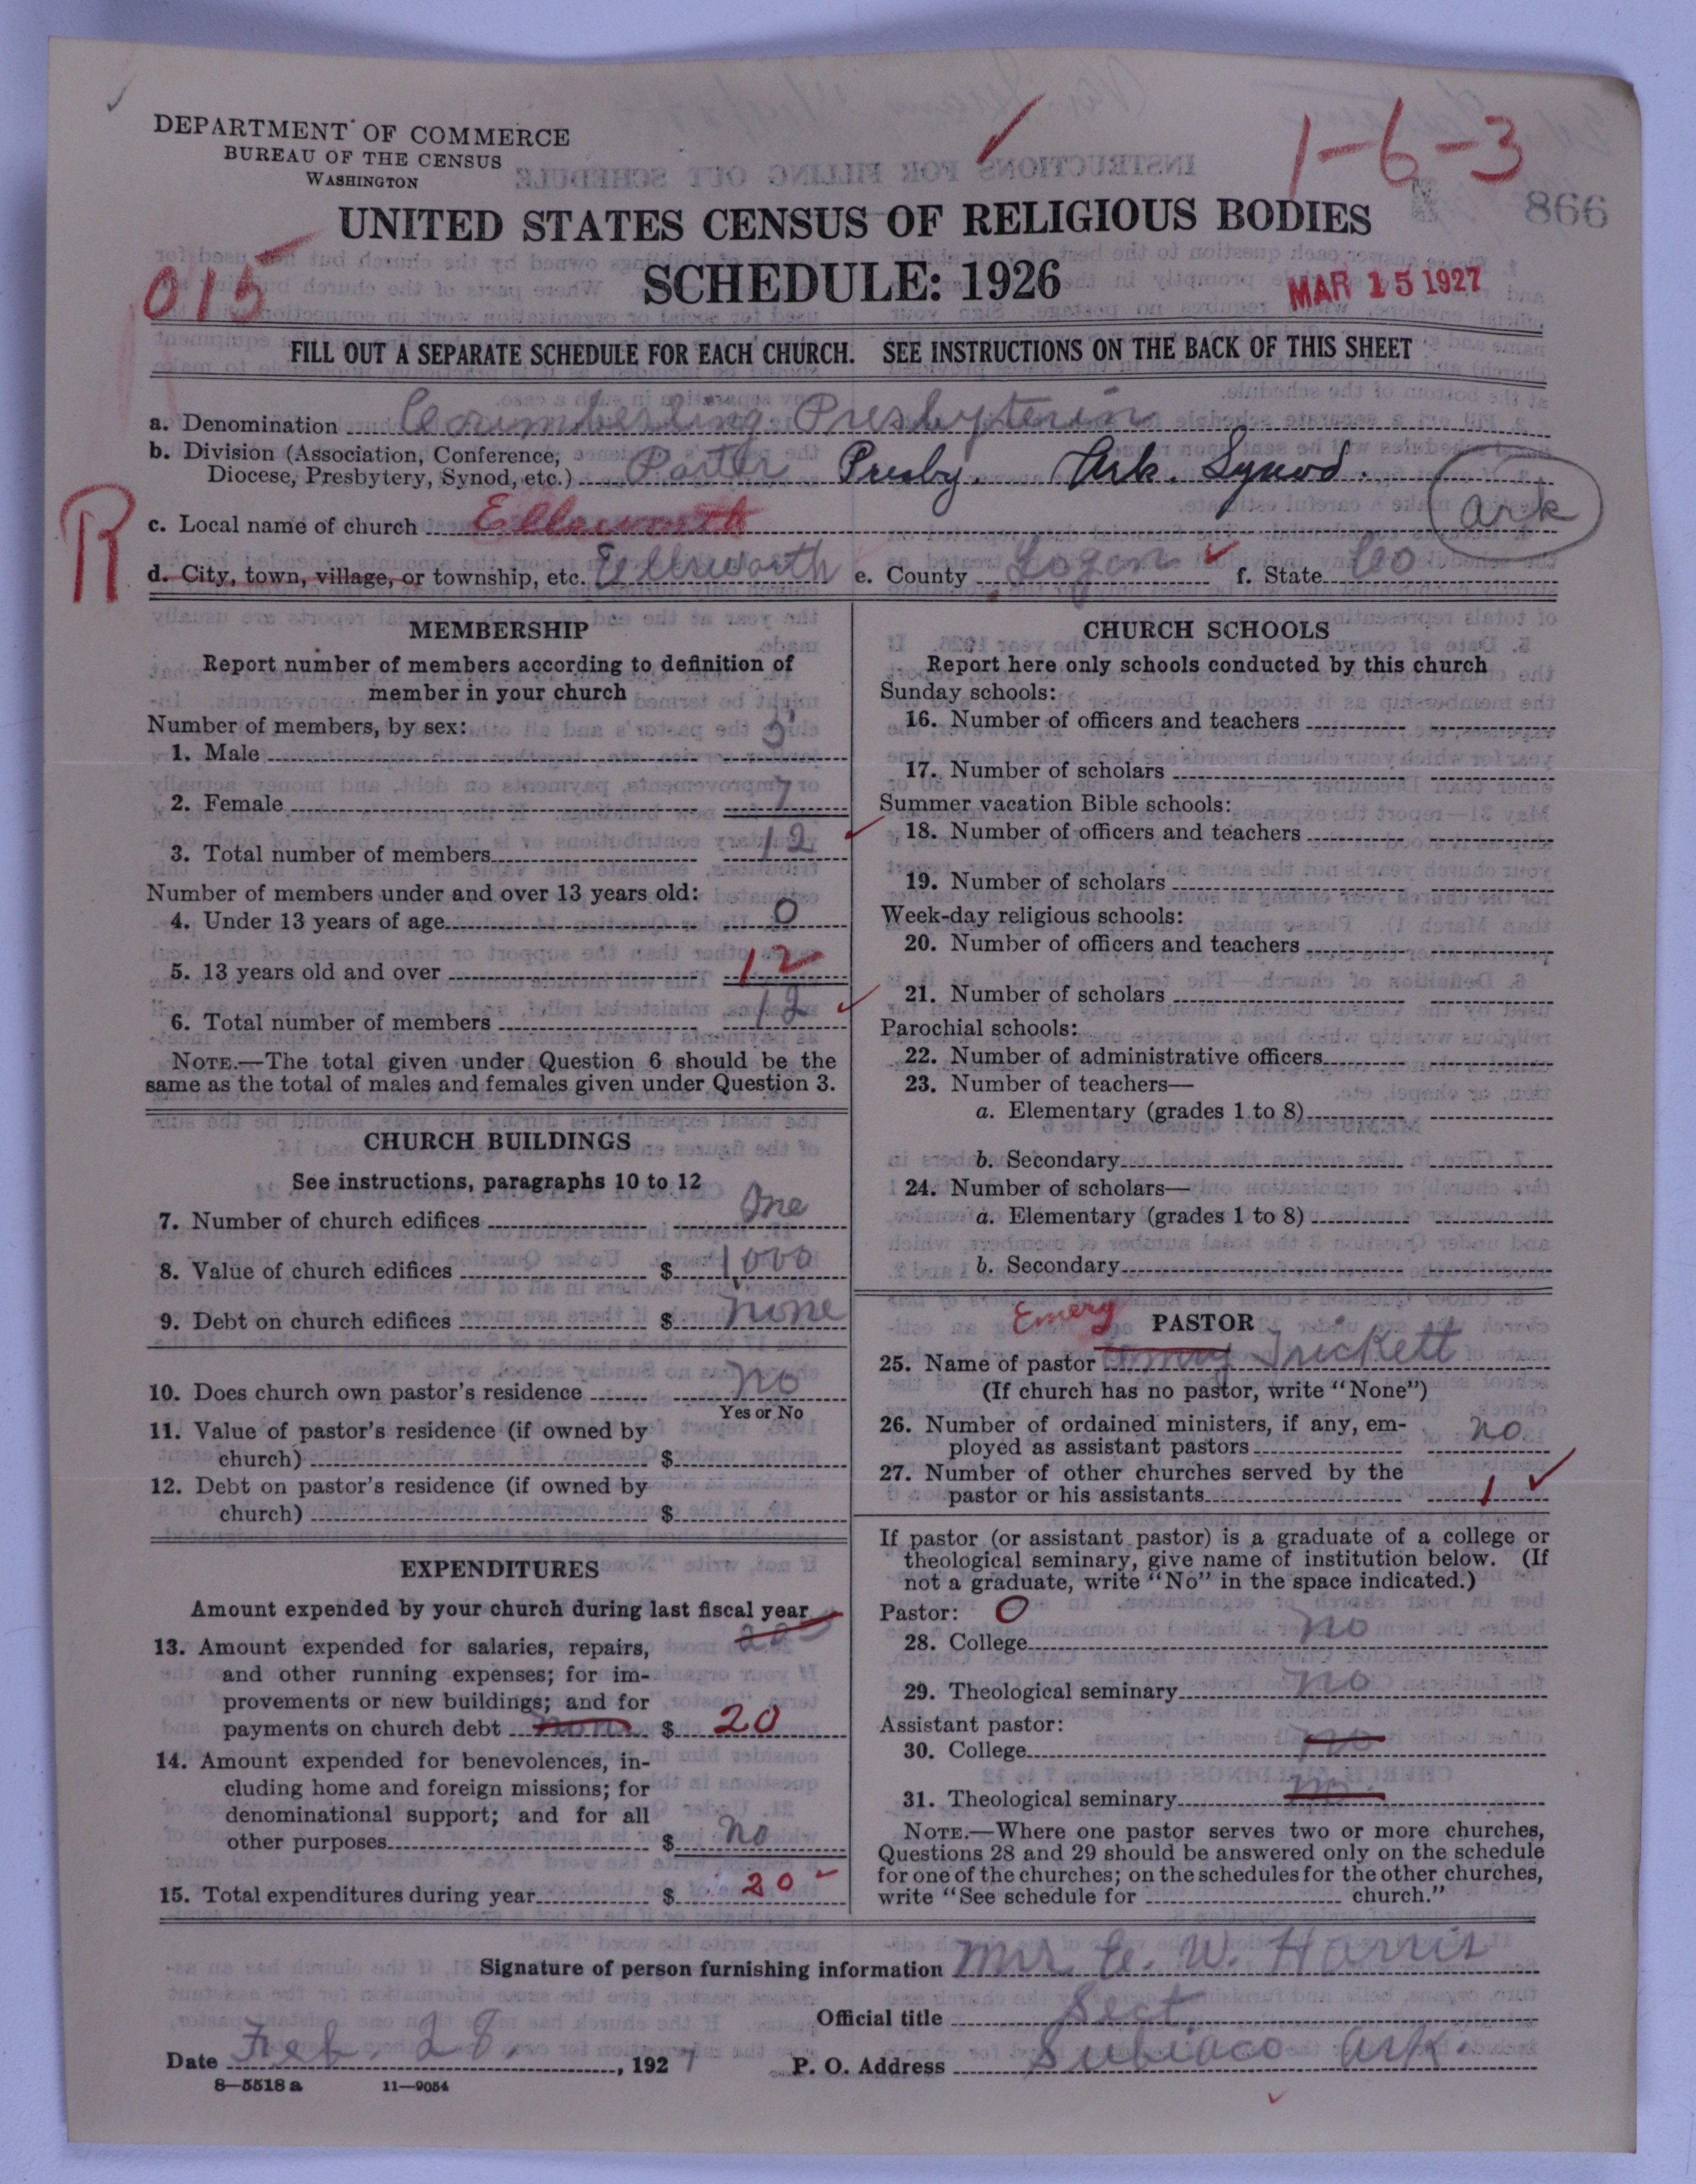 1-6-3
DEPARTMENT OF COMMERCE
BUREAU OF THE CENSUS
WASHINGTON
866
UNITED STATES CENSUS OF RELIGIOUS BODIES
SCHEDULE: 1926
015
MAR 15 1927
FILL OUT A SEPARATE SCHEDULE FOR EACH CHURCH. SEE INSTRUCTIONS ON THE BACK OF THIS SHEET
a. Denomination Presbyterin
b. Division (Association, Conference,
Diocese, Presbytery, Synod, etc.) Porter Presby. Ark. Synod.
Ark
R
c. Local name of church Ellsworth
d. City, town, village, or township, etc. Ellsworth e. County Logan f. State Co
MEMBERSHIP
Report number of members according to definition of
member in your church
Number of members, by sex:
1. Male 5
2. Female 7
3. Total number of members 12
Number of members under and over 13 years old:
4. Under 13 years of age 0
5. 13 years old and over 12
6. Total number of members 12
NOTE.—The total given under Question 6 should be the
same as the total of males and females given under Question 3.
CHURCH BUILDINGS
See instructions, paragraphs 10 to 12
7. Number of church edifices One
8. Value of church edifices $ 1000
9. Debt on church edifices $ none
10. Does church own pastor's residence no
Yes or No
11. Value of pastor's residence (if owned by
church) $
12. Debt on pastor's residence (if owned by
church) $
EXPENDITURES
Amount expended by your church during last fiscal year
13. Amount expended for salaries, repairs,
and other running expenses; for im-
provements or new buildings; and for
payments on church debt none $ 20
14. Amount expended for benevolences, in-
cluding home and foreign missions; for
denominational support; and for all
other purposes $ no
15. Total expenditures during year $ 20
CHURCH SCHOOLS
Report here only schools conducted by this church
Sunday schools:
16. Number of officers and teachers
17. Number of scholars
Summer vacation Bible schools:
18. Number of officers and teachers
19. Number of scholars
Week-day religious schools:
20. Number of officers and teachers
21. Number of scholars
Parochial schools:
22. Number of administrative officers
23. Number of teachers—
a. Elementary (grades 1 to 8)
b. Secondary
24. Number of scholars—
a. Elementary (grades 1 to 8)
b. Secondary
Emery
PASTOR
25. Name of pastor Trickett
(If church has no pastor, write "None")
26. Number of ordained ministers, if any, em-
ployed as assistant pastors no
27. Number of other churches served by the
pastor or his assistants 1
If pastor (or assistant pastor) is a graduate of a college or
theological seminary, give name of institution below. (If
not a graduate, write "No" in the space indicated.)
Pastor: 0
28. College no
29. Theological seminary no
Assistant pastor:
30. College no
31. Theological seminary no.
NOTE.—Where one pastor serves two or more churches,
Questions 28 and 29 should be answered only on the schedule
for one of the churches; on the schedules for the other churches,
write "See schedule for church."
Signature of person furnishing information Mrs E. W. Harris
Official title Sect
Date Feb. 28. , 1927 P. O. Address Subiaco Ark.
8—5518 a 11—9054